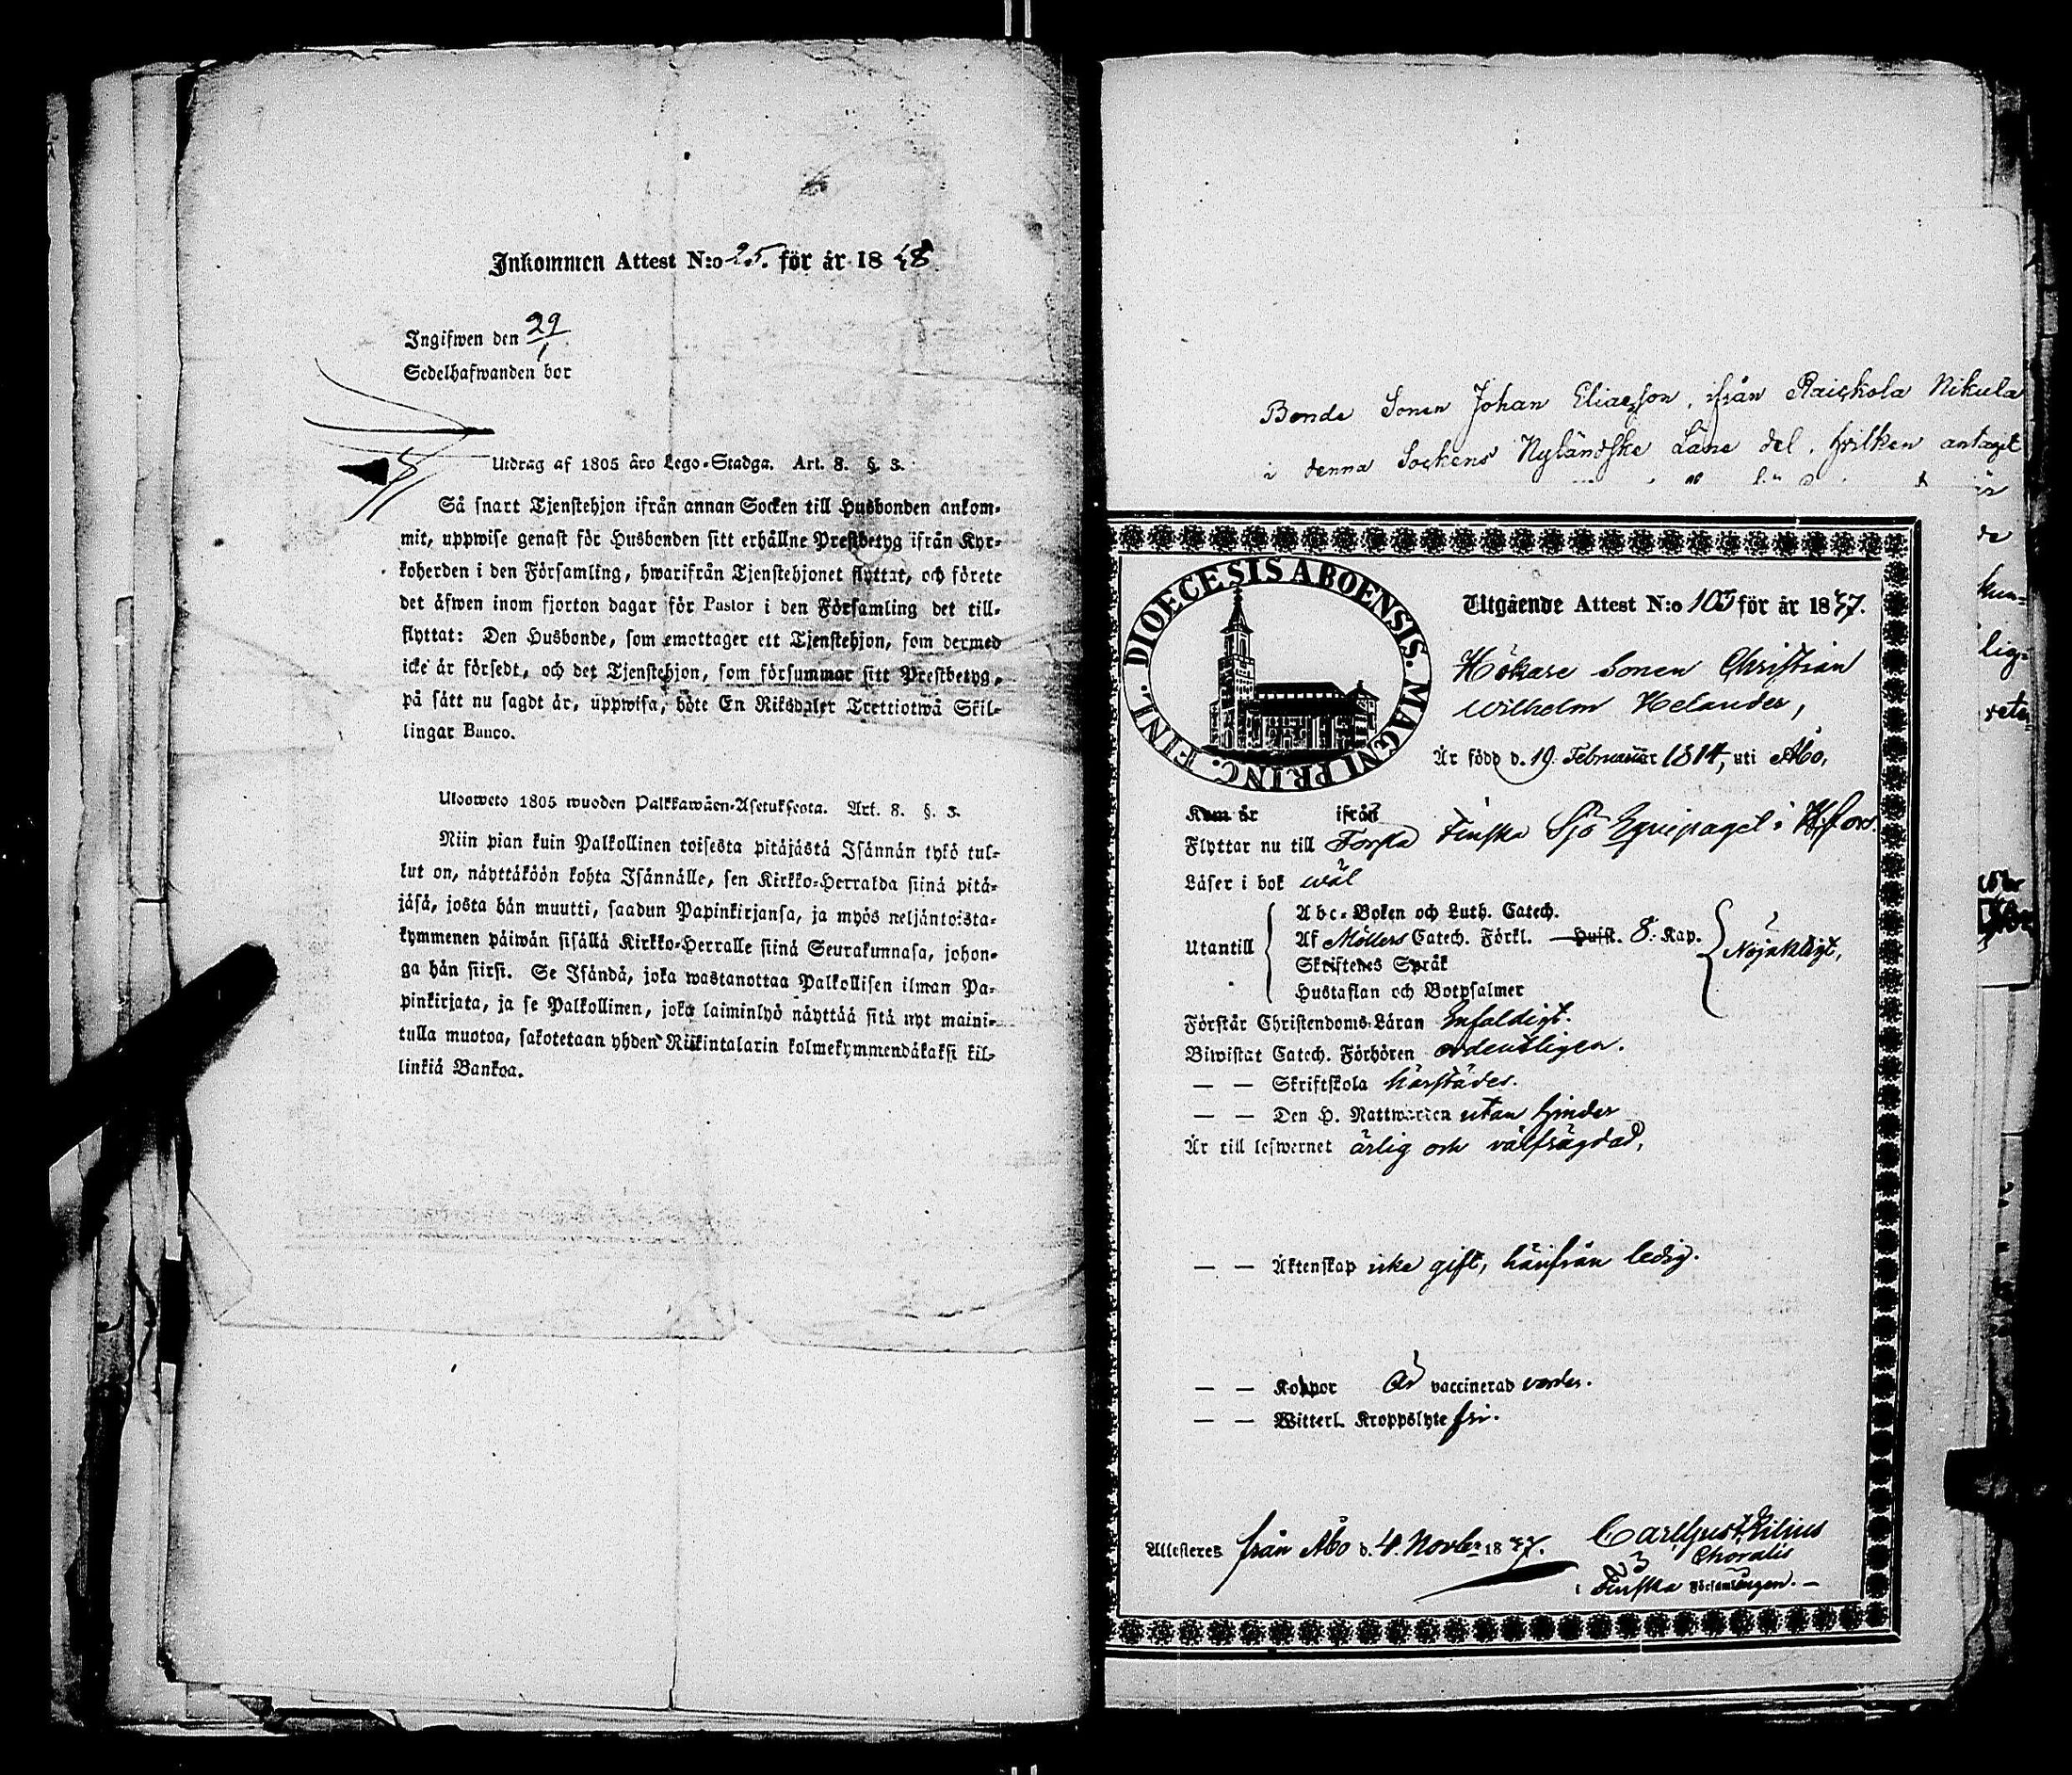 Inkommen Attest N:o 25. för år 1848
Ingifwen den 29/1.
Sedelhafwanden bor
Utdrag af 1805 års Lego-Stadga. Art. 8. §. 3.
Så snart Tjenstehjon ifrån annan Socken till Husbonden ankom-
mit, uppwise genast för Husbonden sitt erhållne Prestbetyg ifrån Kyr-
koherden i den Församling, hwarifrån Tjenstehjonet flyttat, och förete
det äfwen inom fjorton dagar för Pastor i den Församling det till-
flyttat: Den Husbonde, som emottager ett Tjenstehjon, som dermed
icke är försedt, och det Tjenstehjon, som försummar sitt Prestbetyg,
på sätt nu sagdt är, uppwisa, böte En Riksdaler Trettiotwå Skil-
lingar Banco.
Ulosweto 1805 wuoden Palkkawäen-Asetuksesta. Art. 8. §. 3.
Niin pian kuin Palkollinen toisesta pitäjästä Isännän tykö tul-
lut on, näyttäköön kohta Isännälle, sen Kirkko-Herralda siinä pitä-
jäsä, josta hän muutti, saadun Papinkirjansa, ja myös neljäntoista-
kymmenen päiwän sisällä Kirkko-Herralle siinä Seurakunnasa, johon-
ga hän siirsi. Se Isändä, joka wastanottaa Palkollisen ilman Pa-
pinkirjata, ja se Palkollinen, joka laiminlyö näyttää sitä nyt maini-
tulla muotoa, sakotetaan yhden Riikintalarin kolmekymmendäkaksi kil-
linkiä Bankoa.
Bonde Sonen Johan Eliaesson, ifrån Raiskola Nikula
i denna Sockens Nyländske Läns del, hvilken antaget
DIOECESIS ABOENSIS. MAGNI PRINC. FINL.
Utgående Attest N:o 103 för år 1847.
Hökare Sonen Christian
Wilhelm Helander,
Är född d. 19. Februarii 1814, uti Åbo,
Kom år ifrån
Flyttar nu till Första Finska Sjö Equipaget i H:fors.
Läser i bok wäl
Utantill
Abc-Boken och Luth. Catech.
Af Möllers Catech. Förkl. Hufst. 8. Kap.
Skriftenes Språk
Hustaflan och Botpsalmer
Nöjaktigt,
Förstår Christendoms-Läran Enfaldigt.
Biwistat Catech. Förhören ordentligen.
— — Skriftskola härstädes.
— — Den H. Nattwarden utan hinder
Är till lefwernet ärlig och välfrägdad,
— — Äktenskap icke gift, härifrån ledig.
— — Koppor Är vaccinerad vorden.
— — Witterl. Kroppslyte fri.
Attesteres från Åbo d. 4. Novbr 1847.
Carl Gust. Gilius
Choralis
i Finska Församlingen.—